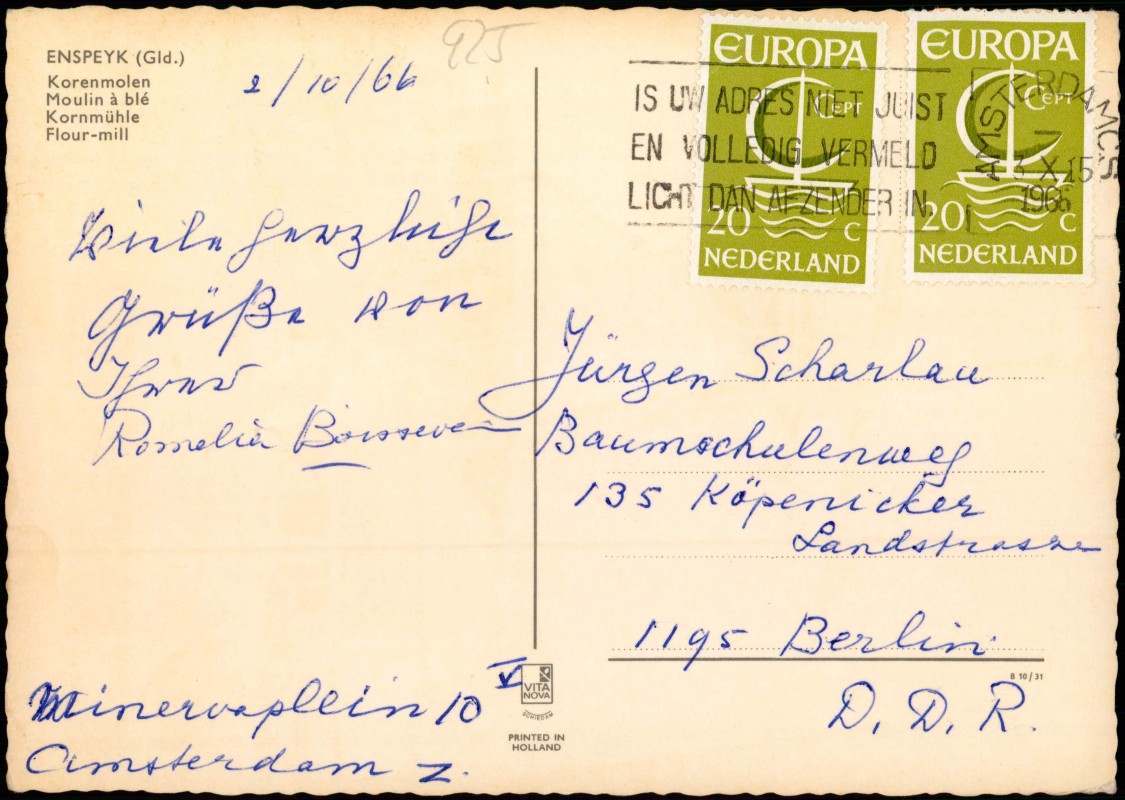 ENSPEYK (Gld.)
Korenmolen
Moulin à blé
Kornmühle
Flour-mill
2/10/66
925
Viele herzliche
Grüße von
Ihrer
Romelia Boissevain
Minervaplein 10 V
Amsterdam Z.
EUROPA
CEPT
20 C
NEDERLAND
EUROPA
CEPT
20 C
NEDERLAND
IS UW ADRES NIET JUIST
EN VOLLEDIG VERMELD
LICHT DAN AFZENDER IN
AMSTERDAM CS
3 X 15
1966
Jürgen Scharlau
Baumschulenweg
135 Köpenicker
Landstrasse
1195 Berlin
D. D. R.
B 10/31
VITA
NOVA
SCHIEDAM
PRINTED IN
HOLLAND